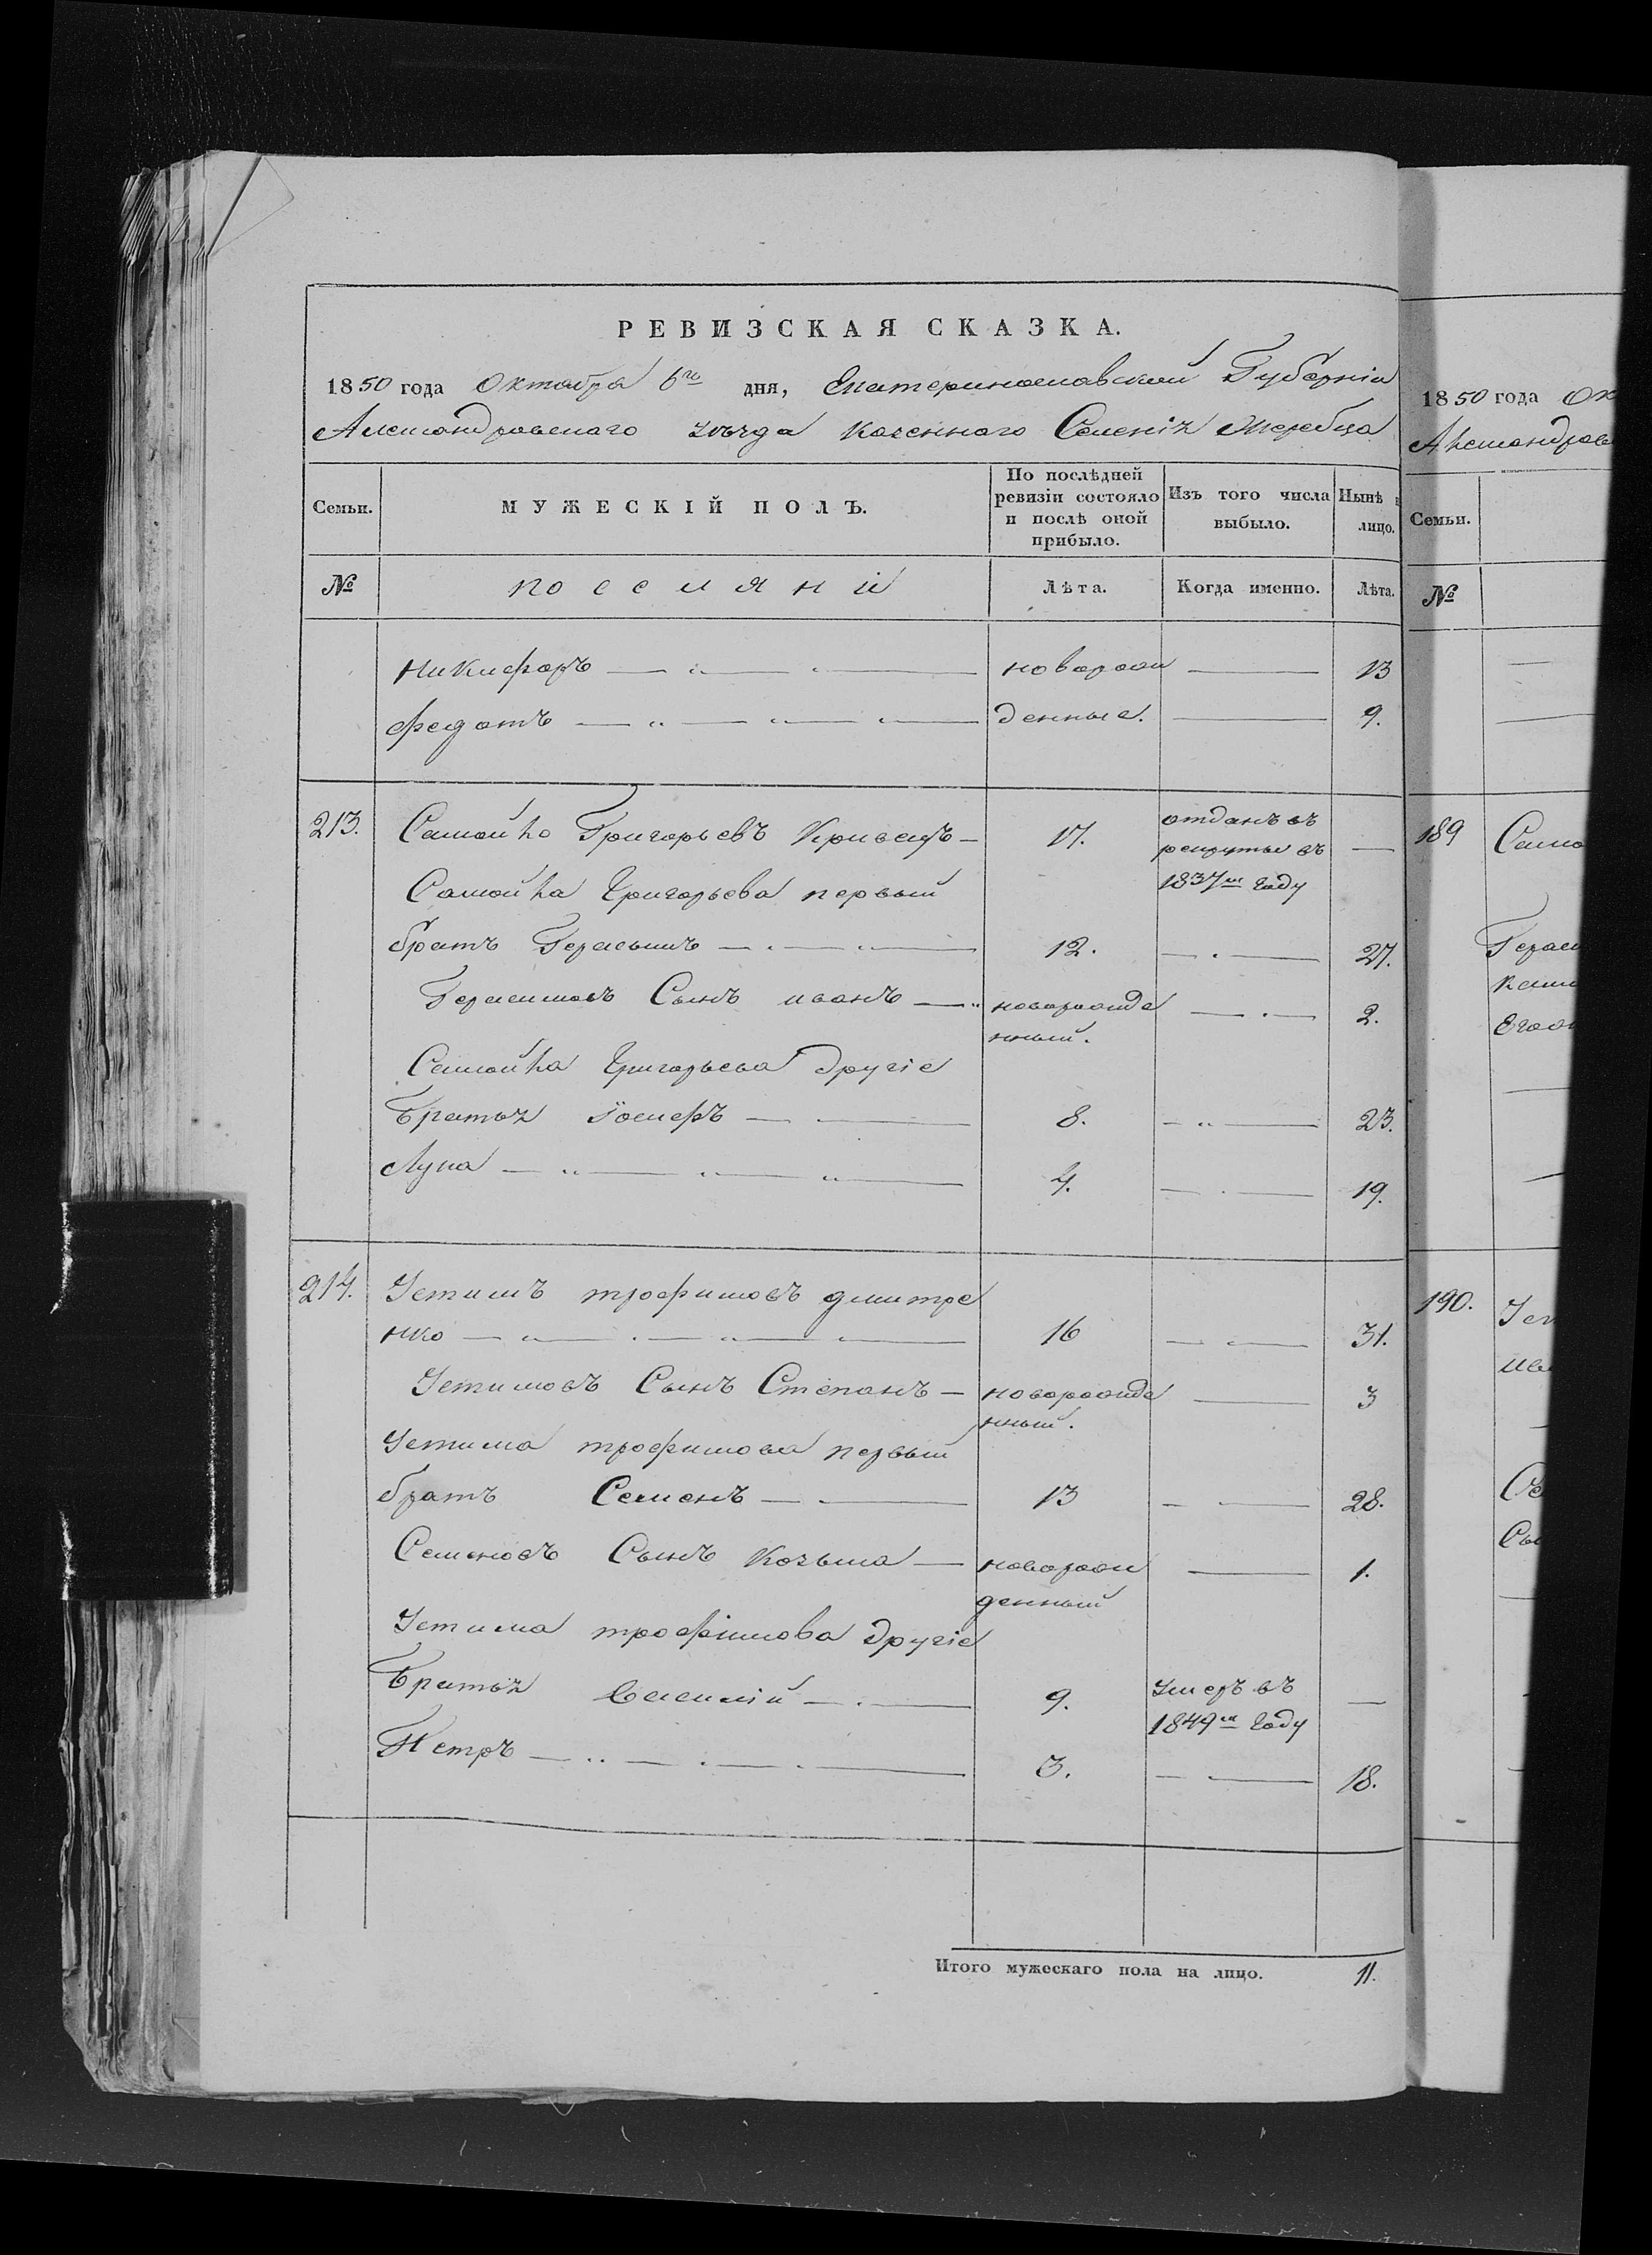 РЕВИЗСКАЯ СКАЗКА.
1850 года Октября 6го дня, Екатеринославской Губерніи
Александровскаго уѣзда казеннаго Селенія Жеребца
Семьи.
МУЖЕСКІЙ ПОЛЪ.
По послѣдней ревизіи состояло и послѣ оной прибыло.
Изъ того числа выбыло.
Нынѣ
лицо.
№
поселяни
Лѣта.
Когда именно.
Лѣта.
Никифоръ — новорож — 13
Федотъ — денные. — 9.
213. Самойло Григорьевъ Кривецъ — 17. отданъ въ рекруты въ 1837м году —
Самойла Григорьева первый
братъ Герасимъ — 12. — 27.
Герасимовъ Сынъ иванъ — новорожде нный. — 2.
Самойла Григорьева другіе
Братья Іосифъ — 8. — 23.
Лука — 4. — 19.
214. Устимъ трофимовъ дмитре
нко — 16 — 31.
Устимовъ Сынъ Степанъ — новорожде нный. — 3
Устима трофимова первый
братъ Семенъ — 13 — 28.
Семеновъ Сынъ Козьма — новорож денный — 1.
Устима трофімова другіе
Братья 9. умеръ въ 1849м году —
Петръ — 3. — 18.
Итого мужескаго пола на лицо. 11.
1850 года Ок
Александров
Семьи.
№
189 Само
Герас
Егоо
190. Уст
Се
Сы